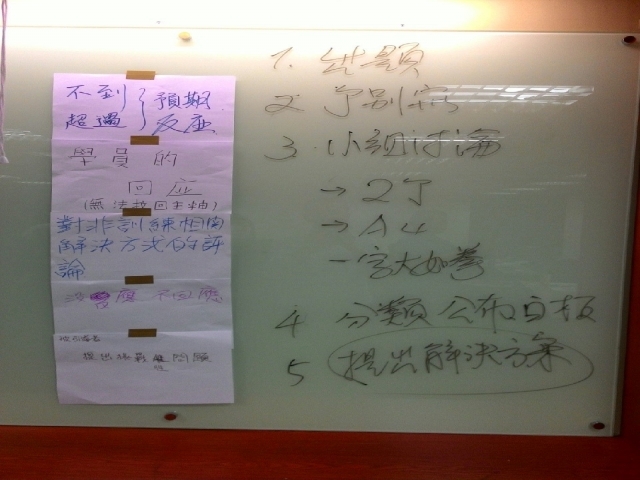 不到 } 預期
超過 } 反應
學員的
回应
(無法拉回主軸)
對非訓練相関
解決方式的評
論
沒 度 不回應
提出 問題
1. 出題
2 個別寫
3. 小組討論
→ 2丁
→ A4
一字大如拳
4 分類公布白板
5 提出解決方案